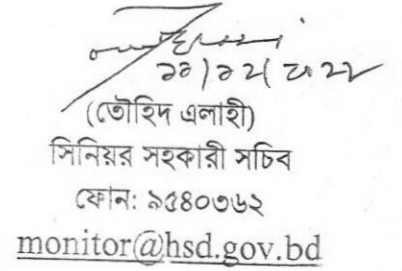 (তৌহিদ এলাহী)
সিনিয়র সহকারী সচিব
ফোন: ৯৫৪০৩৬২
monitor@hsd.gov.bd